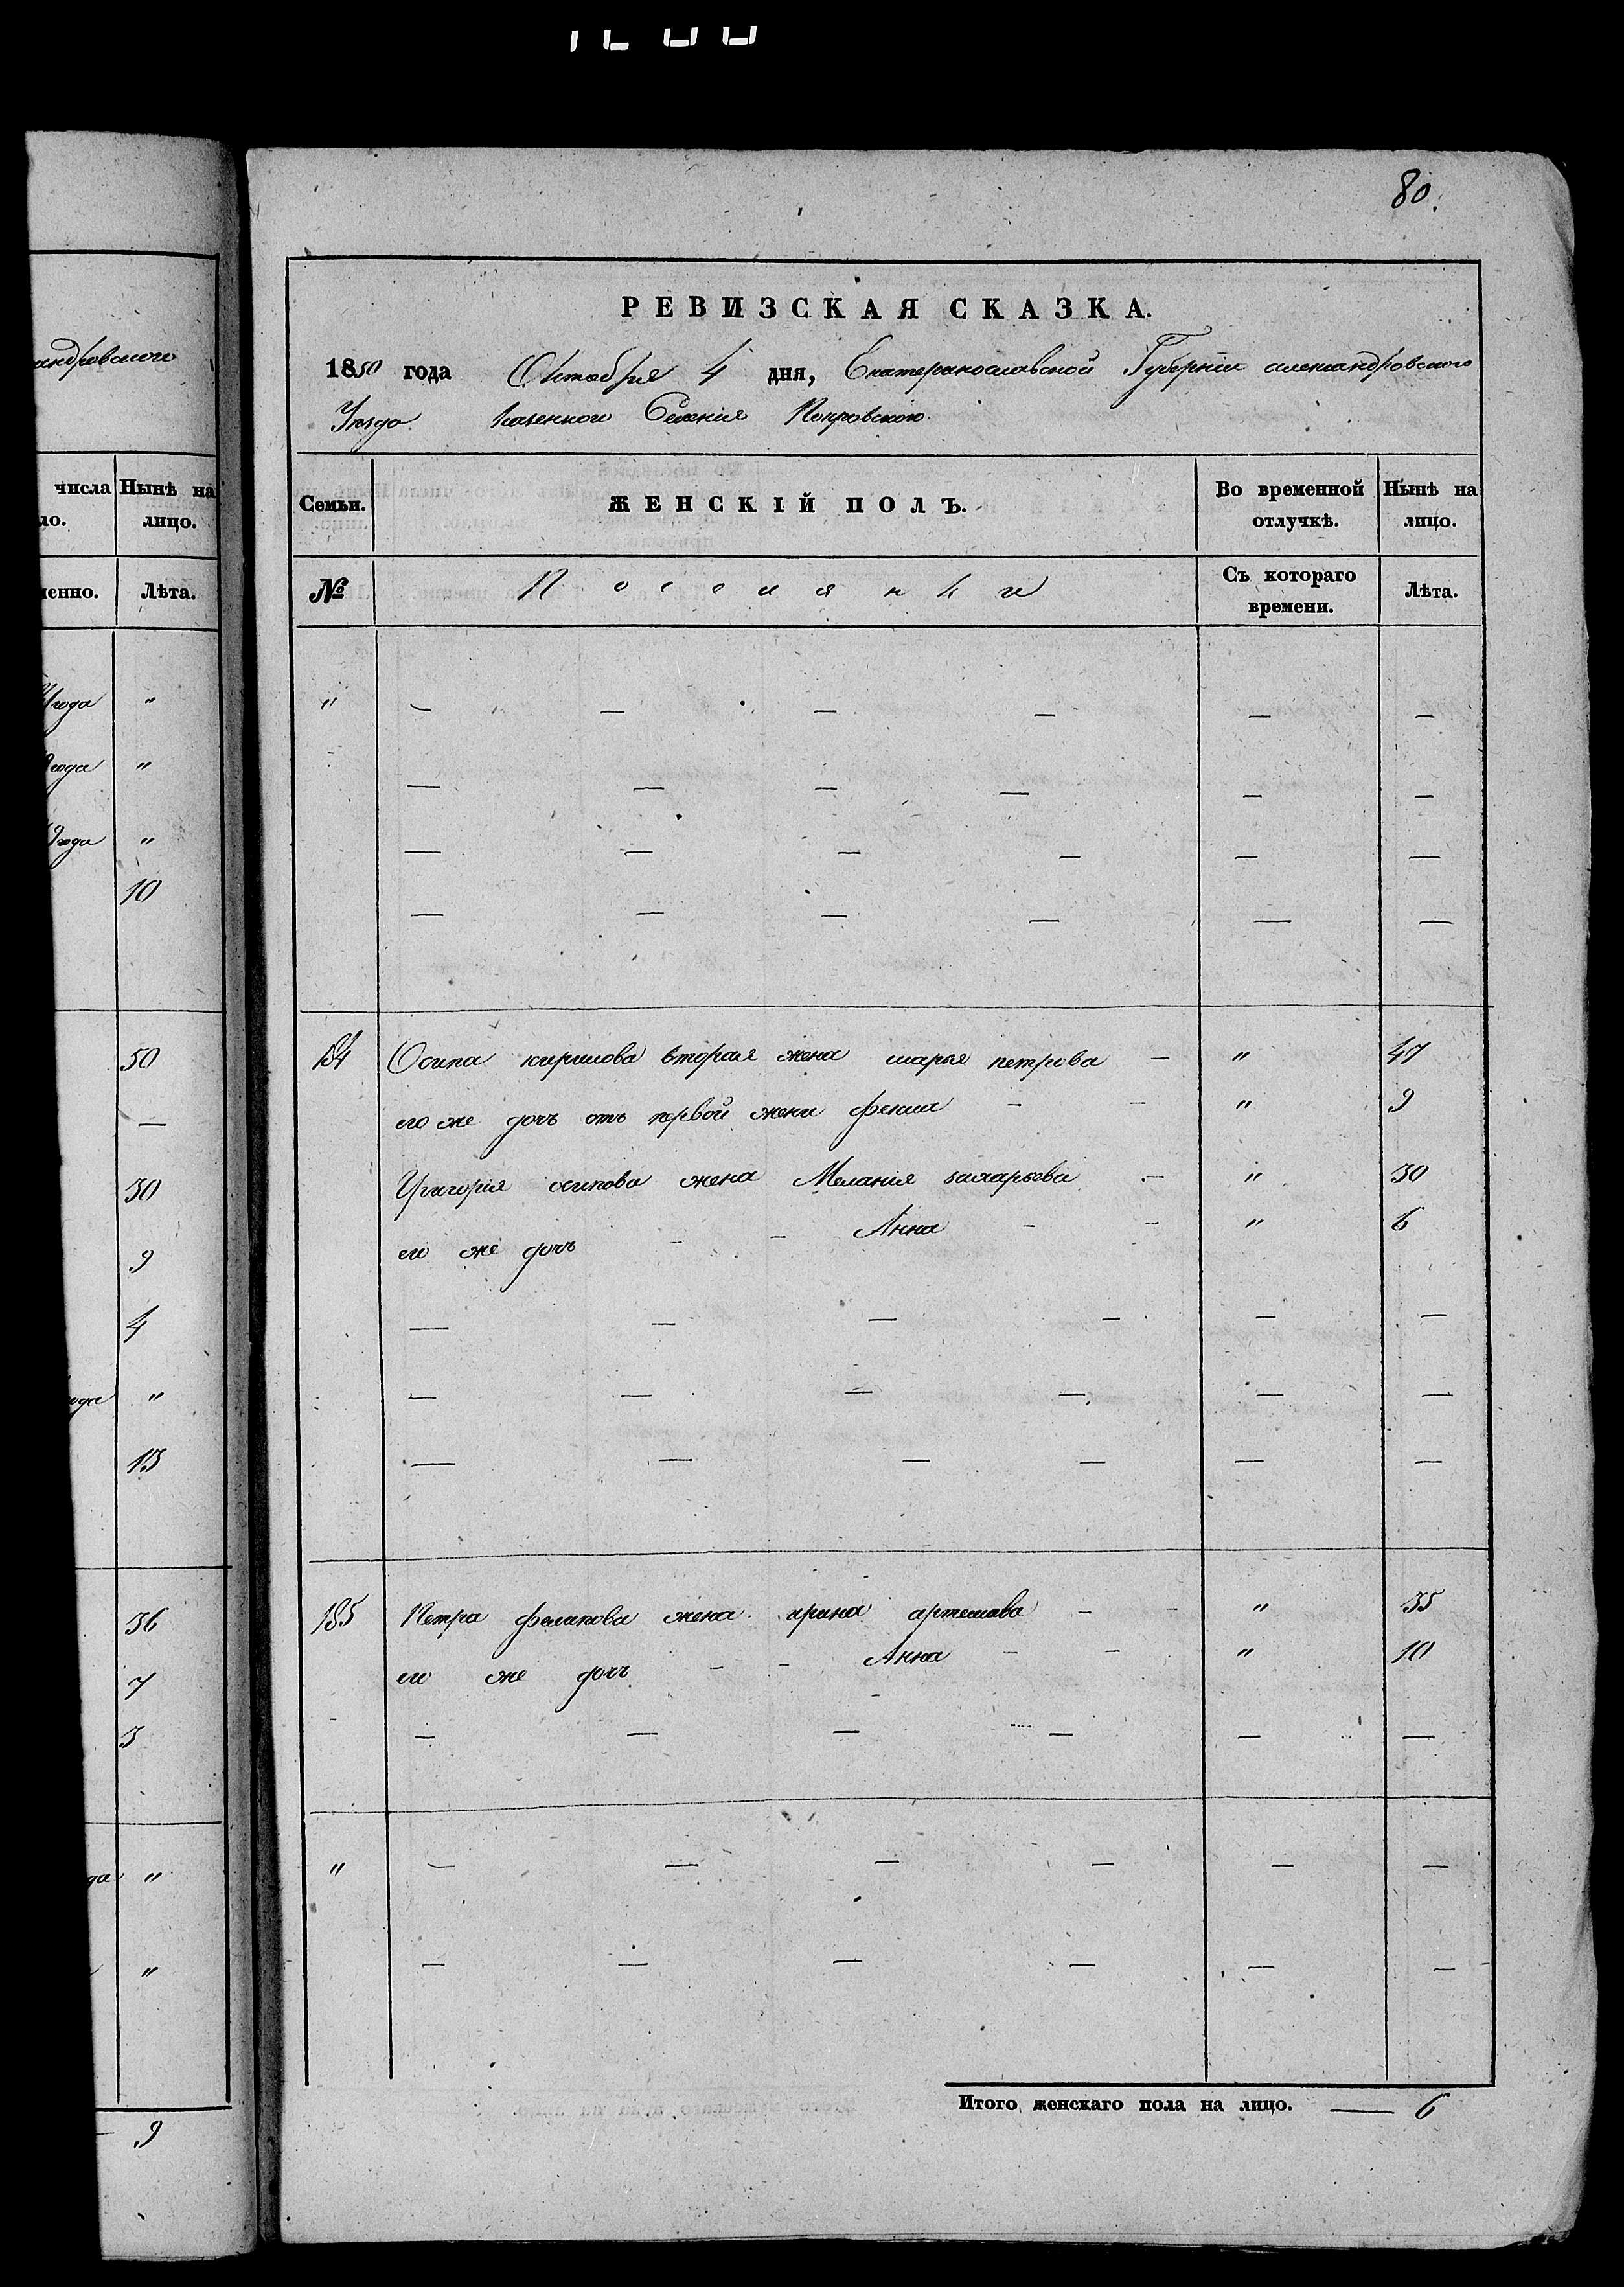 80.
андровского
числа Нынѣ на
ло. лицо.
менно. Лѣта.
года "
года "
9 года "
10
50
—
30
9
4
года "
13
36
7
3
да "
"
9
РЕВИЗСКАЯ СКАЗКА.
1850 года Октября 4 дня, Екатеринославской Губернии александровского
Уезда казенного Селения Покровского.
Семьи. ЖЕНСКІЙ ПОЛЪ. Во временной отлучкѣ. Нынѣ на лицо.
№ Поселянки Съ котораго времени. Лѣта.
" — — — — — —
— — — — — —
— — — — — —
— — — — — —
184 Осипа кирилова вторая жена марья петрова — " 47
его же дочь отъ первой жени — — " 9
Григорія осипова жена Меланія захарьева — " 30
его же дочь — — Анна — — " 6
— — — — — —
— — — — — —
— — — — — —
185 Петра филипова жена ирина артемова — — " 35
его же дочь — — Анна — — " 10
— — — — — —
" — — — — — —
— — — — — —
Итого женскаго пола на лицо. — 6